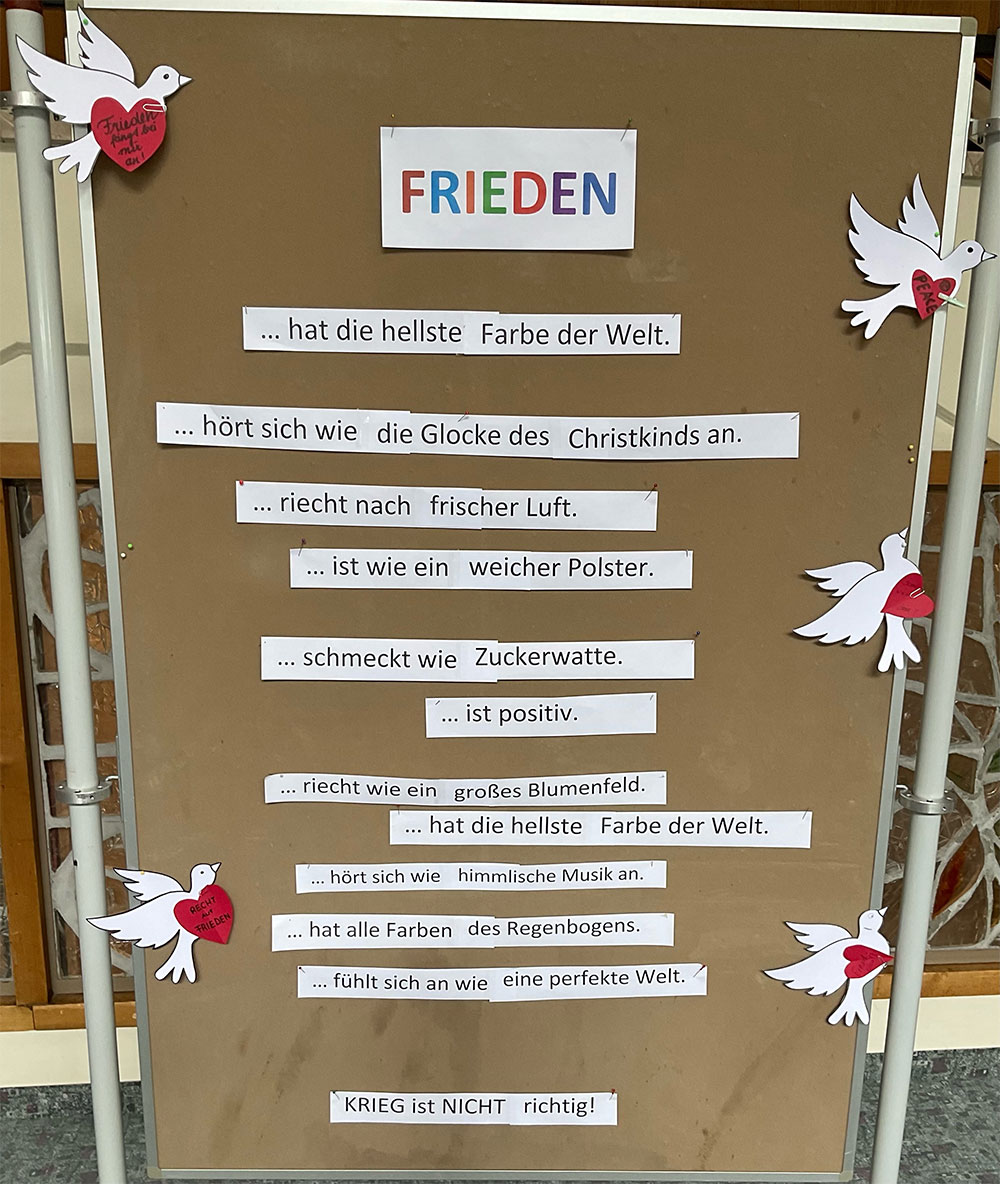 Frieden
fängt bei
mir
an!
FRIEDEN
PEACE
... hat die hellste Farbe der Welt.
... hört sich wie die Glocke des Christkinds an.
... riecht nach frischer Luft.
... ist wie ein weicher Polster.
... schmeckt wie Zuckerwatte.
... ist positiv.
... riecht wie ein großes Blumenfeld.
... hat die hellste Farbe der Welt.
... hört sich wie himmlische Musik an.
RECHT
AUF
FRIEDEN
... hat alle Farben des Regenbogens.
... fühlt sich an wie eine perfekte Welt.
KRIEG ist NICHT richtig!